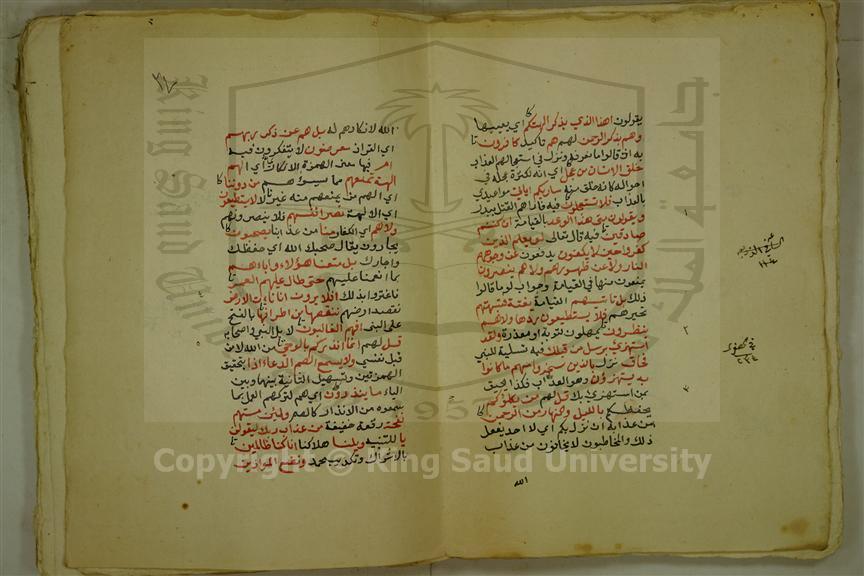 يقولون اهذا الذي يذكر الهتكم اي يعيبها
وهم بذكر الرحمن لهم هم تاكيد كافرون
به اذ قالوا ما نعرفه ونزل في استعجالهم العذاب
خلق الانسان من عجل اي انه لكثرة عجله في
احواله كانه خلق منه ساريكم اياتي مواعيدي
بالعذاب فلا تستعجلون فيه فاراهم القتل ببدر
ويقولون متى هذا الوعد بالقيامة ان كنتم
صادقين فيه قال تعالى لو يعلم الذين
كفروا حين لا يكفون يدفعون عن وجوههم
النار ولا عن ظهورهم ولا هم ينصرون
يمنعون منها في القيامة وجواب لو ما قالوا
ذلك بل تاتيهم القيامة بغتة فتبهتهم
تحيرهم فلا يستطيعون ردها ولا هم
ينظرون يمهلون لتوبة او معذرة ولقد
استهزئ برسل من قبلك فيه تسلية للنبي
فحاق نزل بالذين سخروا منهم ما كانوا
به يستهزؤن وهو العذاب فكذا يحيق
بمن استهزئ بك قل لهم من يكلؤكم
يحفظكم بالليل والنهار من الرحمن
من عذابه ان نزل بكم اي لا احد يفعل
ذلك والمخاطبون لا يخافون من عذاب
الله
الله لانكارهم له بل هم عن ذكر ربهم
اي القران معرضون لا يتفكرون فيه
ام فيها معنى الهمزة الانكاري اي الهم
الهة تمنعهم مما يسوءهم من دوننا
اي الهم من يمنعهم منه غيرنا لا يستطيعون
اي الالهة نصر انفسهم فلا ينصرونهم
ولا هم اي الكفار منا من عذابنا يصحبون
يجارون يقال صحبك الله اي حفظك
واجارك بل متعنا هؤلاء واباءهم
بما انعمنا عليهم حتى طال عليهم العمر
فاغتروا بذلك افلا يرون انا ناتي الارض
نقصد ارضهم ننقصها من اطرافها بالفتح
على النبي افهم الغالبون لا بل النبي واصحابه
قل لهم انما انذركم بالوحي من الله لا من
قبل نفسي ولا يسمع الصم الدعاء اذا بتحقيق
الهمزتين وتسهيل الثانية بينها وبين
الياء ما ينذرون اي هم لتركهم العمل بما
سمعوه من الانذار كالصم ولئن مستهم
نفحة وقعة خفيفة من عذاب ربك ليقولن
يا للتنبيه ويلنا هلاكنا انا كنا ظالمين
بالاشراك وتكذيب محمد ونضع الموازين
King Saud University
جامعة الملك
1957
Copyright © King Saud University